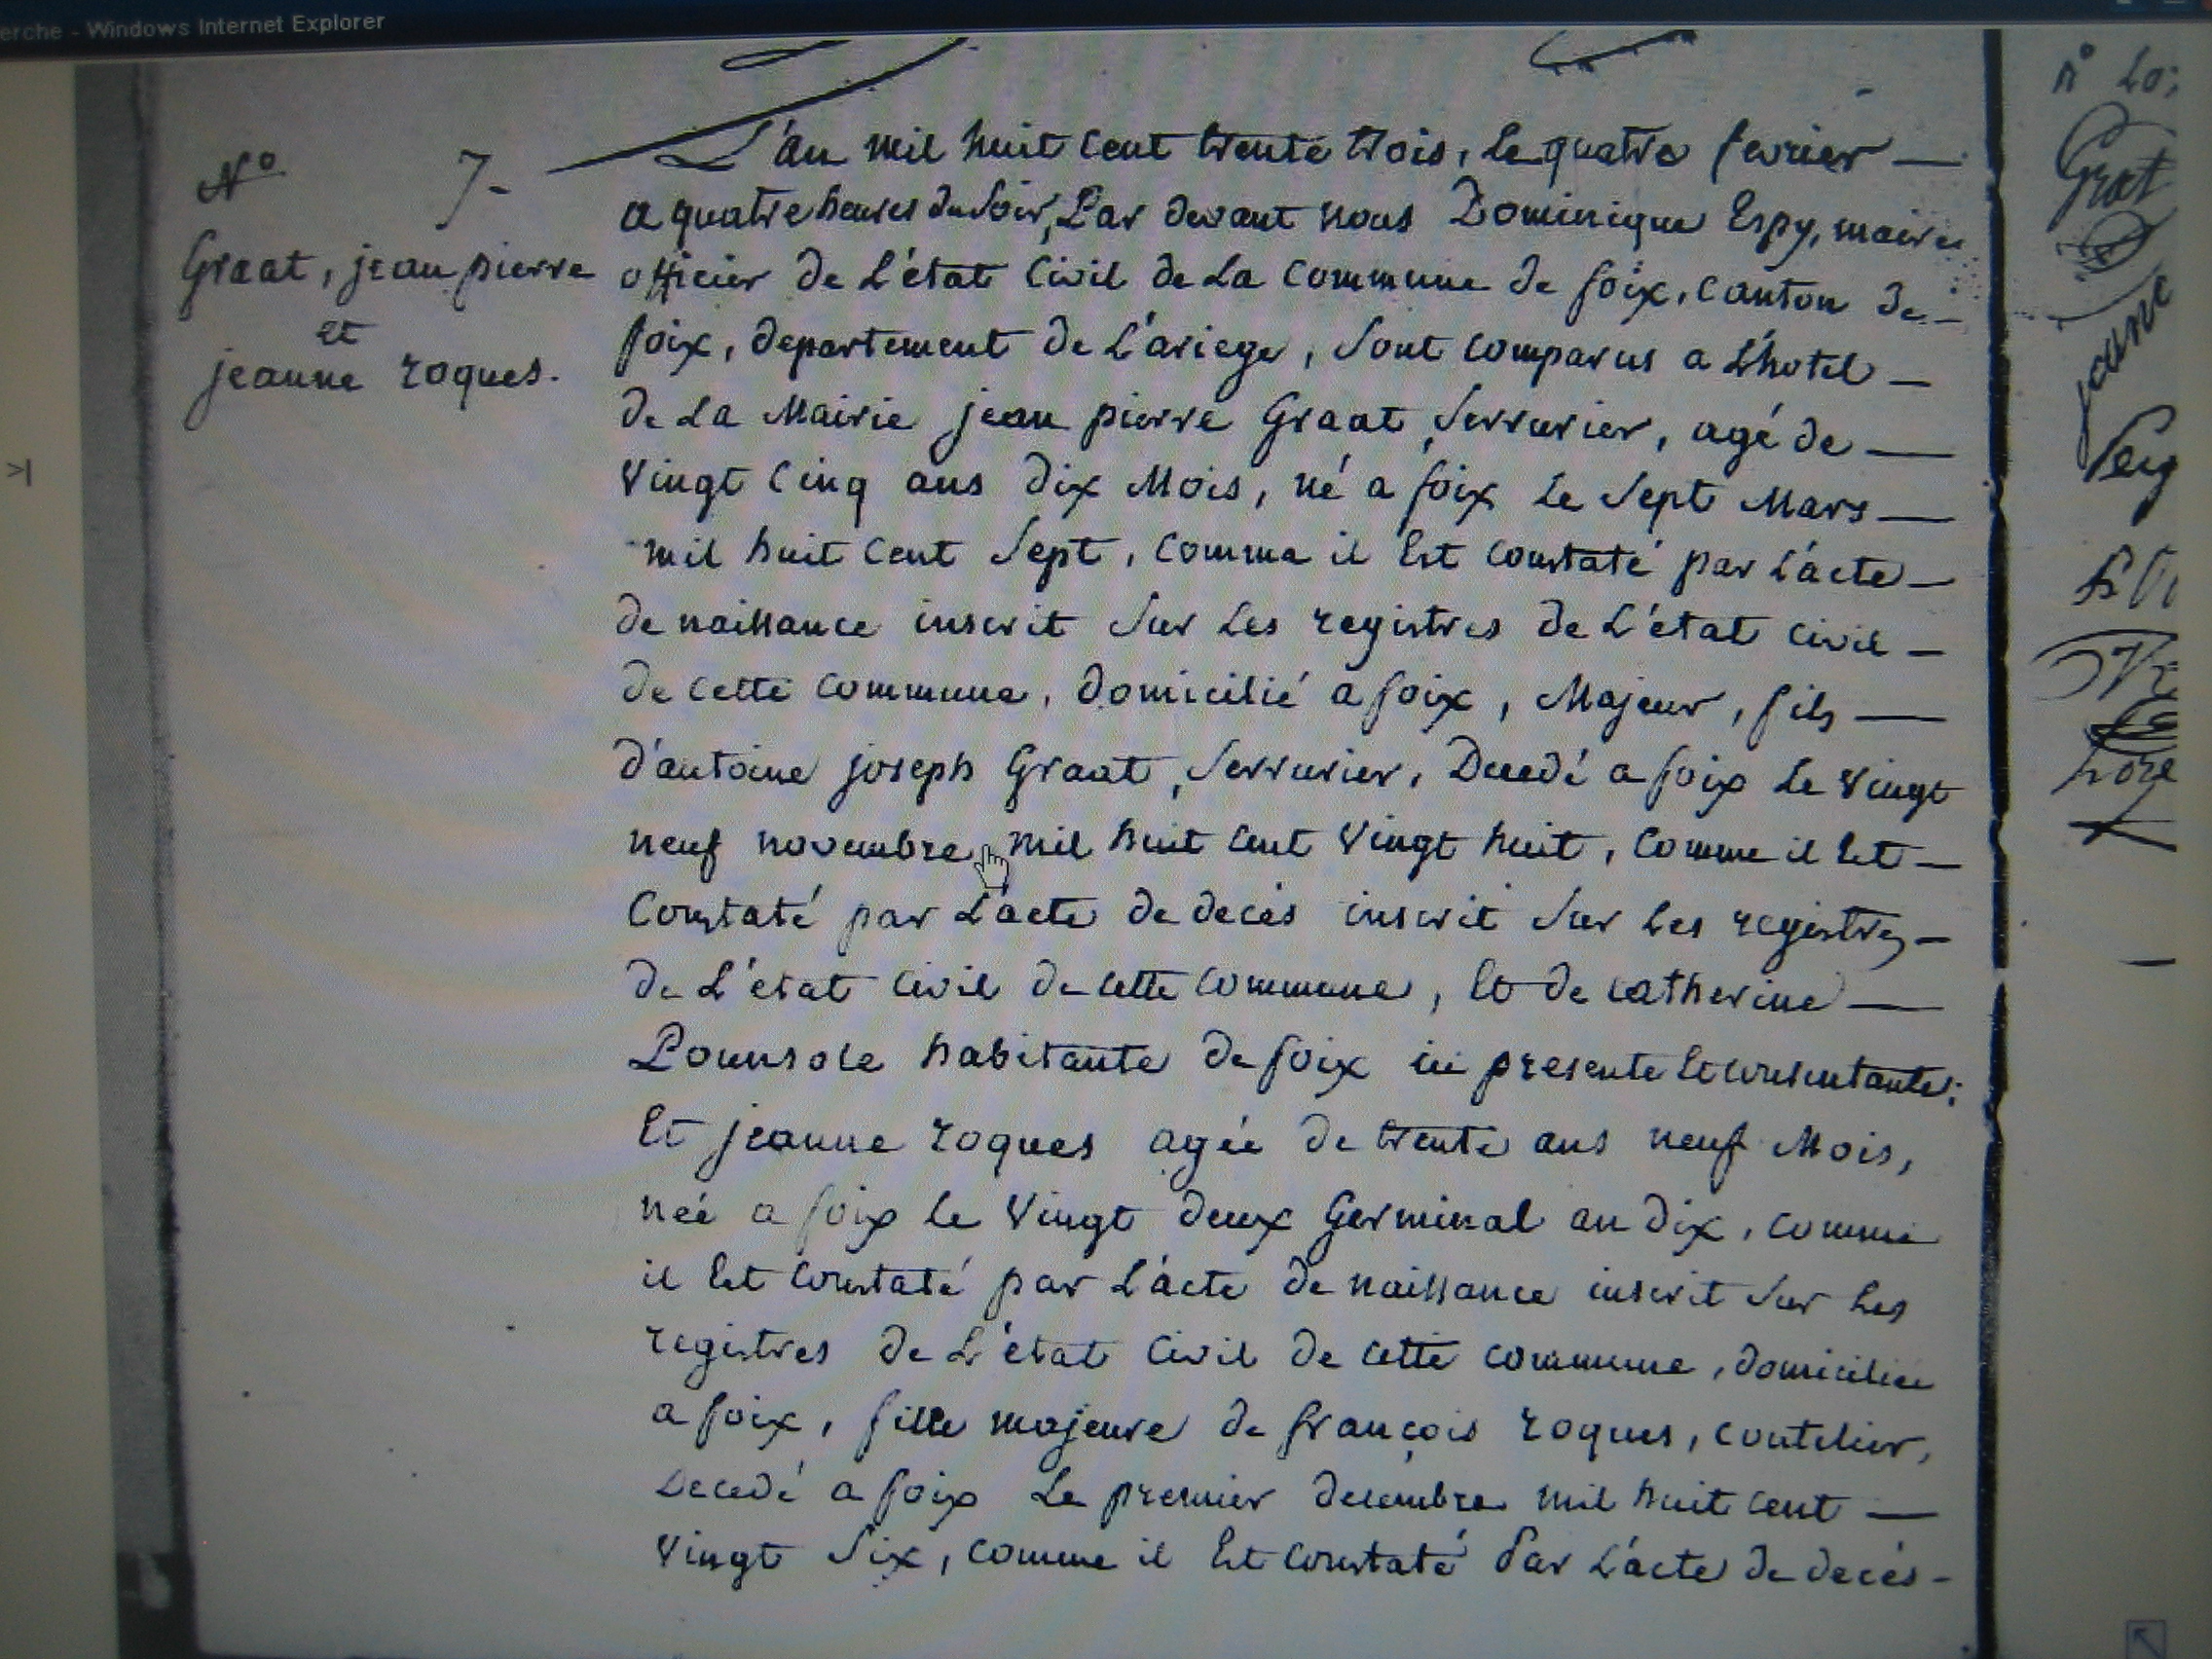 erche - Windows Internet Explorer
N° 7.
Graat, jean pierre
et
jeanne roques.
L'an mil huit cent trente trois, Le quatre fevrier —
a quatre heures du Soir, Par devant nous Dominique Espy, maire
officier de L'état Civil de La Commune de foix, Canton de —
foix, departement de L'ariege, Sont comparus a L'hotel —
de La Mairie jean pierre Graat, Serrurier, agé de —
Vingt Cinq ans dix Mois, né a foix Le Sept Mars —
mil huit Cent Sept, Comme il Est Constaté par L'acte —
de naissance inscrit Sur Les registres de L'état Civil —
de cette commune, domicilié a foix, Majeur, fils —
d'antoine joseph Graat, Serrurier, Decedé a foix Le Vingt
neuf novembre mil huit Cent Vingt huit, Comme il Est —
Constaté par L'acte de decès inscrit Sur Les registres —
de L'état Civil de Cette Commune, Et de Catherine —
Pounsole habitante de foix ici presente Et Consentante;
Et jeanne roques agée de trente ans neuf Mois,
née a foix Le Vingt deux Germinal an dix, Comme
il Est Constaté par L'acte de naissance inscrit Sur Les
registres de L'état Civil de Cette Commune, domiciliée
a foix, fille majeure de françois roques, Coutelier,
Decedé a foix Le premier decembre mil huit Cent —
Vingt Six, Comme il Est Constaté Par L'acte de decès -
n° 20;
Grat
jeane